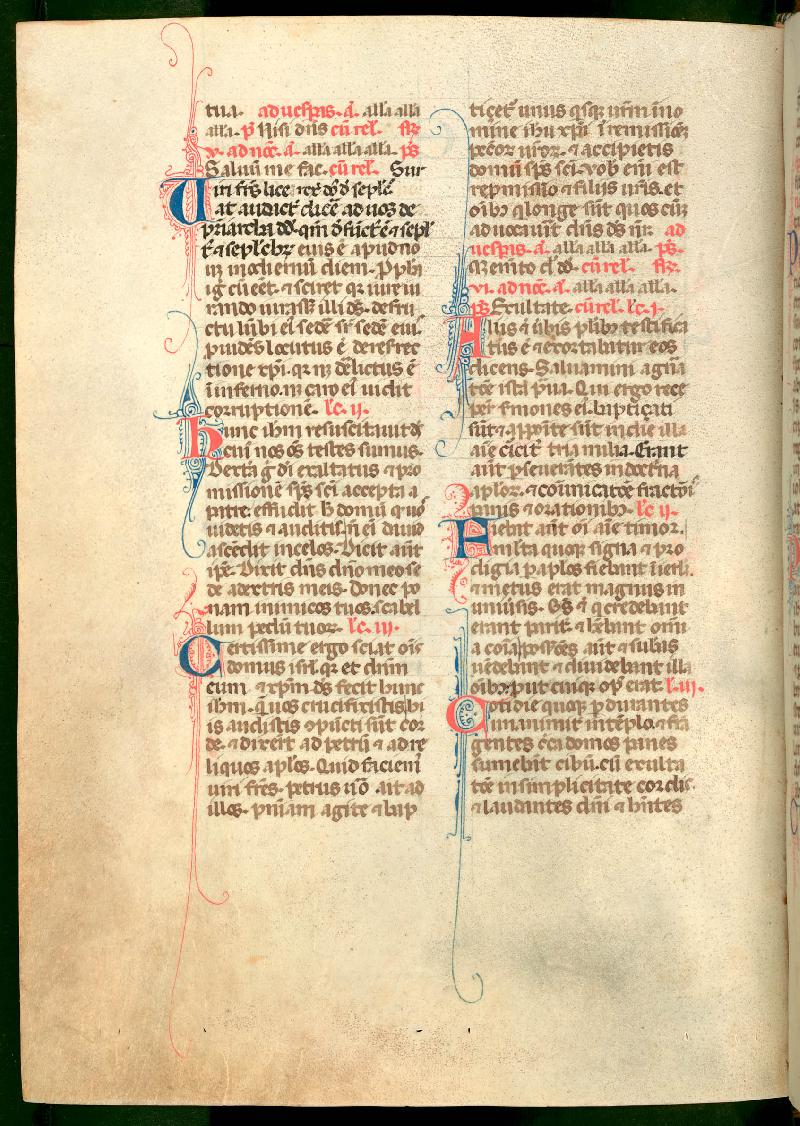 tua. ad uesp̄is. a. alla alla
alla. p̄s Nisi dn̄s cū rel. fr̄
v. ad noc̄. a. alla alla alla. p̄s
Saluū me fac. cū rel.
Uiri fr̄s lice
at audict̄ dicē ad uos de
p̄riarcha dd̄. qm̄ dfūct̄ ē ⁊ sepl
t̄ ⁊ seplchꝝ eius ē apud no
in hodiernū diem. Pph̄
iḡ cū eēt. ⁊ sciret qꝛ iure iu
rando iurass̄ illi ds̄. de fru
ctu lūbi eı̄ sedē sr̄ sedē eiꝰ.
puidēs locutus ē de resrrec
tione xp̄i. qꝛ neqꝫ delictus ē
ī inferno. neqꝫ caro eı̄ uidit
corruptionē. lc̄. ij.
Hunc ihm̄ resuscitauit ds̄
cui nos oēs testes sumus.
Dextā g̅ di exaltatus ⁊ pro
missionē sp̄s sc̄i accepta a
patre. effudit h̄ donū quō
uidetis ⁊ auditis. nō ei̅ dauid
ascēdit in celos. Dicit aūt
ip̄e. Dixit dn̄s dn̄o meo se
de a dextris meis. donec po
nam inimicos tuos scabel
lum pedū tuoꝝ. lc̄. iij.
Certissime ergo sciat oīs
domus isrl̄. qꝛ et dn̄m
eum ⁊ xp̄m ds̄ fecit hunc
ihm̄. quos crucifixistis. hi
is auditis ↄpūcti sūt cor
de. ⁊ dixert̄ ad petrū ⁊ ad re
liquos apl̄os. Quid faciemꝰ
uiri fr̄es. petrus uō ait ad
illos. pniam agite ⁊ bap
tiçet̄ unus qsqꝫ urm̄ ī no
mine ihu xp̄i. ī remissiōeꝫ
pctōꝝ ur̄oꝝ. ⁊ accipietis
donū sp̄s sc̄i. vob̄ eni̅ est
repmissio ⁊ filijs ur̄is. et
oībꝫ q̄ longe sūt quos cūqꝫ
aduocauit dn̄s ds̄ nr̄. ad
uesp̄is. a. alla alla alla. p̄s.
Memento dn̄e dd̄. cū rel. fr̄.
vi. ad noc̄. a. alla alla alla.
p̄s Exultate. cū rel. lc̄. i.
Alijs ⁊ ūbis plib̄ꝫ testifica
tus ē ⁊ exortabatur eos
dicens. Saluamini a gn̄a
tōe ista p̄ua. Qui ergo rece
per̄t sermones eı̄. baptiçati
sūt. ⁊ appōite sūt in die illa
aīe circit̄ tria milia. Erant
aūt pseuerātes in doctrīa
aploꝝ. ⁊ coīcatiōe fractiōı̄
panis ⁊ orationibꝫ. lc̄ ij.
Fiebat aūt oī aīe timor.
multa quoqꝫ signa ⁊ pro
digia p apl̄os fiebant ī ierl̄.
⁊ metus erat magnus in
uniūsis. Os̄ ⁊ q credebant
erant parit̄. ⁊ hēbant om̄ia
a coīa. possēs aūt ⁊ subās
uēdebant ⁊ diuidebant illa
oībꝫ. put cuiqꝫ opꝰ erat. l. iij.
Cotidie quoqꝫ p durantes
unanimit̄ in tēplo. ⁊ frā
gentes circa domos panes
sumebāt cibū. cū exulta
tōe in simplicitate cordis.
⁊ laudantes dm̄ ⁊ hn̄tes